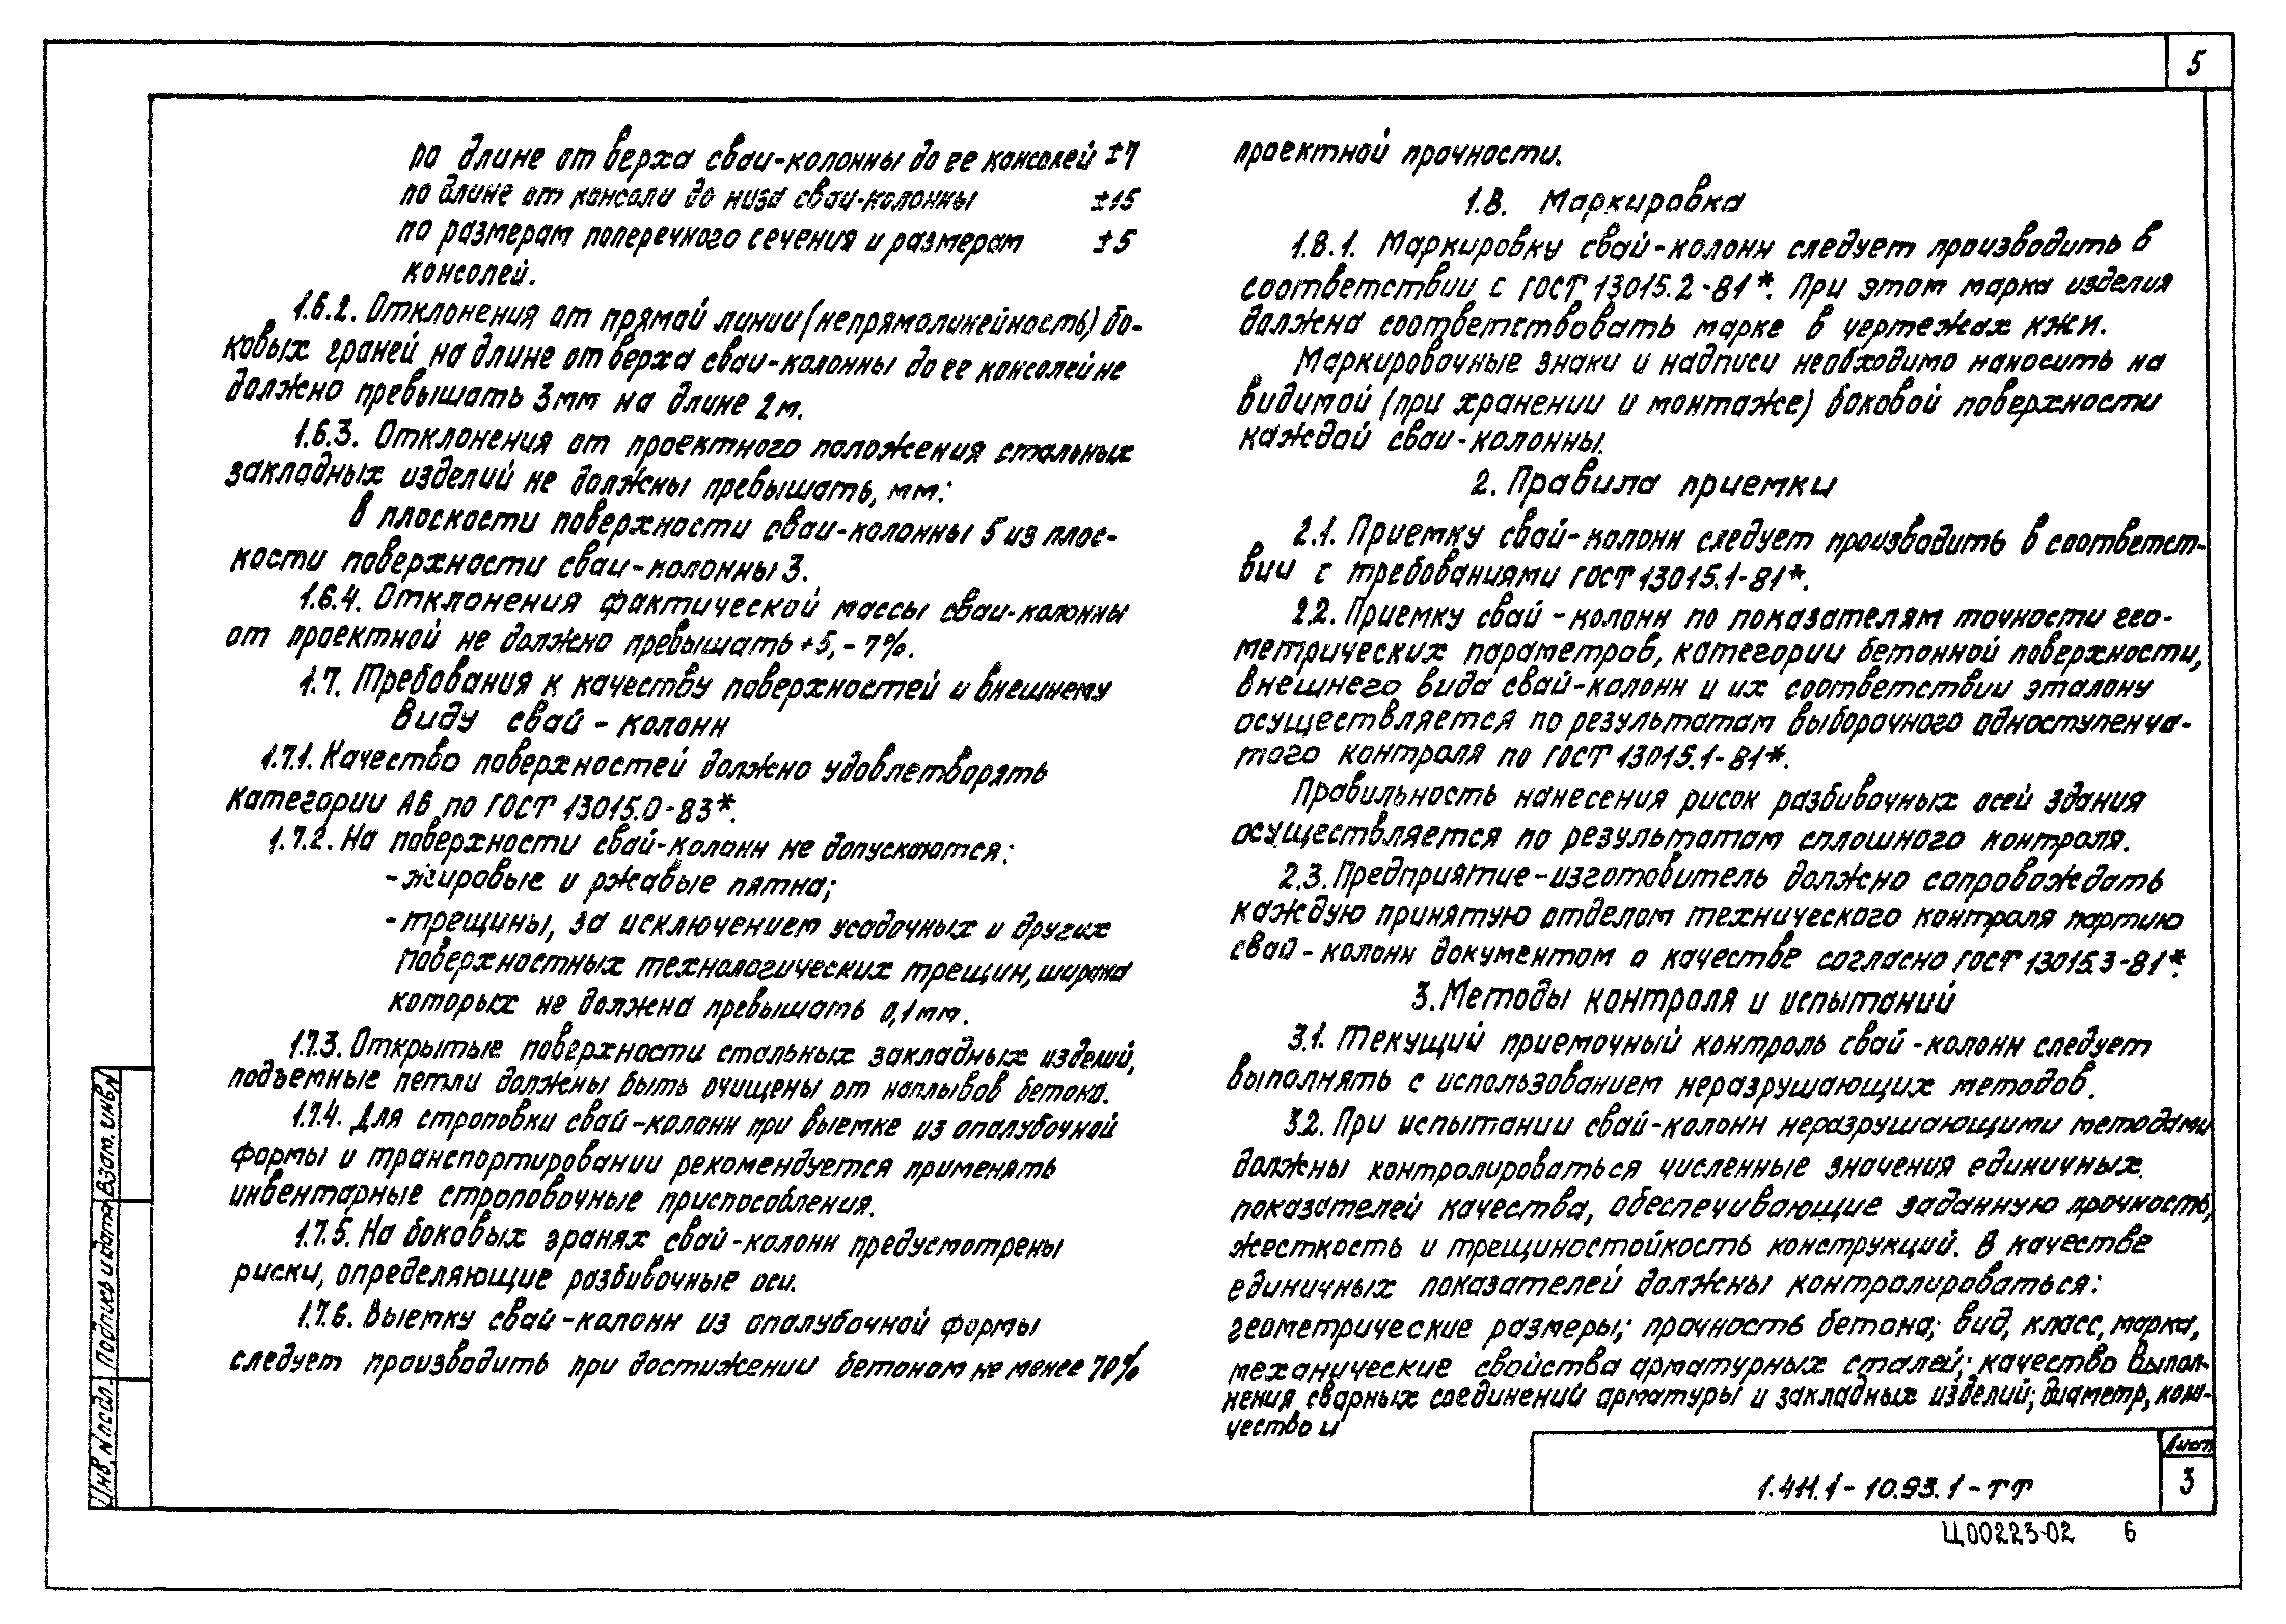 5
по длине от верха сваи-колонны до ее консолей ±7
по длине от консоли до низа сваи-колонны ±15
по размерам поперечного сечения и размерам ±5
консолей.
1.6.2. Отклонения от прямой линии (непрямолинейность) бо-
ковых граней на длине от верха сваи-колонны до ее консолей не
должно превышать 3мм на длине 2м.
1.6.3. Отклонения от проектного положения стальных
закладных изделий не должны превышать, мм:
в плоскости поверхности сваи-колонны 5 из плос-
кости поверхности сваи-колонны 3.
1.6.4. Отклонения фактической массы сваи-колонны
от проектной не должно превышать +5, -7%.
1.7. Требования к качеству поверхностей и внешнему
виду свай-колонн
1.7.1. Качество поверхностей должно удовлетворять
категории А6 по ГОСТ 13015.0-83*.
1.7.2. На поверхности свай-колонн не допускаются:
-жировые и ржавые пятна;
-трещины, за исключением усадочных и других
поверхностных технологических трещин, ширина
которых не должна превышать 0,1мм.
1.7.3. Открытые поверхности стальных закладных изделий,
подъемные петли должны быть очищены от наплывов бетона.
1.7.4. Для строповки свай-колонн при выемке из опалубочной
формы и транспортировании рекомендуется применять
инвентарные строповочные приспособления.
1.7.5. На боковых гранях свай-колонн предусмотрены
риски, определяющие разбивочные оси.
1.7.6. Выемку свай-колонн из опалубочной формы
следует производить при достижении бетоном не менее 70%
проектной прочности.
1.8. Маркировка
1.8.1. Маркировку свай-колонн следует производить в
соответствии с ГОСТ 13015.2-81*. При этом марка изделия
должна соответствовать марке в чертежах КЖИ.
Маркировочные знаки и надписи необходимо наносить на
видимой (при хранении и монтаже) боковой поверхности
каждой сваи-колонны.
2. Правила приемки
2.1. Приемку свай-колонн следует производить в соответст-
вии с требованиями ГОСТ 13015.1-81*.
2.2. Приемку свай-колонн по показателям точности гео-
метрических параметров, категории бетонной поверхности,
внешнего вида свай-колонн и их соответствии эталону
осуществляется по результатам выборочного одноступенча-
того контроля по ГОСТ 13015.1-81*.
Правильность нанесения рисок разбивочных осей здания
осуществляется по результатам сплошного контроля.
2.3. Предприятие-изготовитель должно сопровождать
каждую принятую отделом технического контроля партию
свай-колонн документом о качестве согласно ГОСТ 13015.3-81*.
3. Методы контроля и испытаний
3.1. Текущий приемочный контроль свай-колонн следует
выполнять с использованием неразрушающих методов.
3.2. При испытании свай-колонн неразрушающими методами
должны контролироваться численные значения единичных
показателей качества, обеспечивающие заданную прочность,
жесткость и трещиностойкость конструкций. В качестве
единичных показателей должны контролироваться:
геометрические размеры; прочность бетона; вид, класс, марка,
механические свойства арматурных сталей; качество выпол-
нения сварных соединений арматуры и закладных изделий; диаметр, коли-
чество и
Взам. инв. N
Подпись и дата
Инв. N подл.
1.411.1-10.93.1-ТТ
Лист
3
Ц00223-02 6